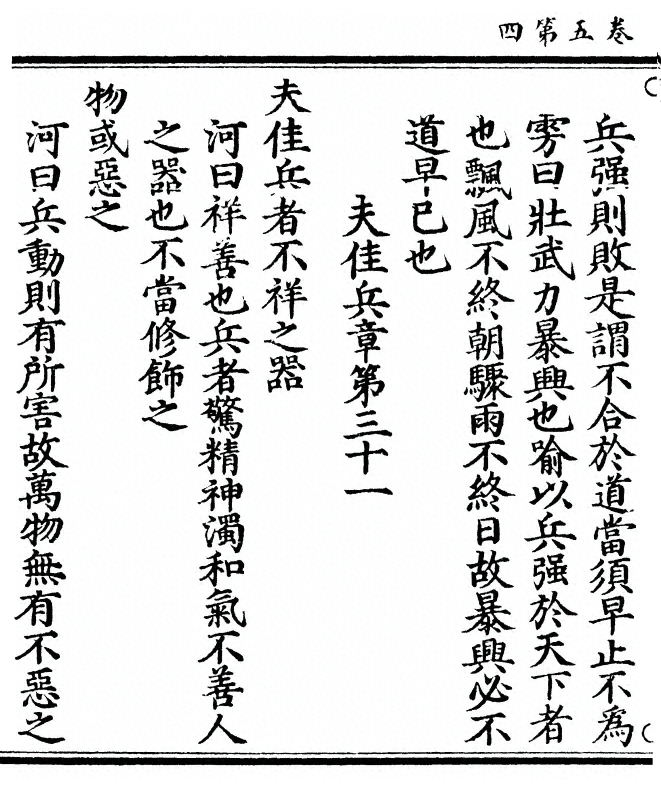 卷五第四
兵强則敗是謂不合於道當須早止不爲
雱曰壯武力暴興也喻以兵强於天下者
也飄風不終朝驟雨不終日故暴興必不
道早已也
夫佳兵章第三十一
夫佳兵者不祥之器
河曰祥善也兵者驚精神濁和氣不善人
之器也不當修飾之
物或惡之
河曰兵動則有所害故萬物無有不惡之